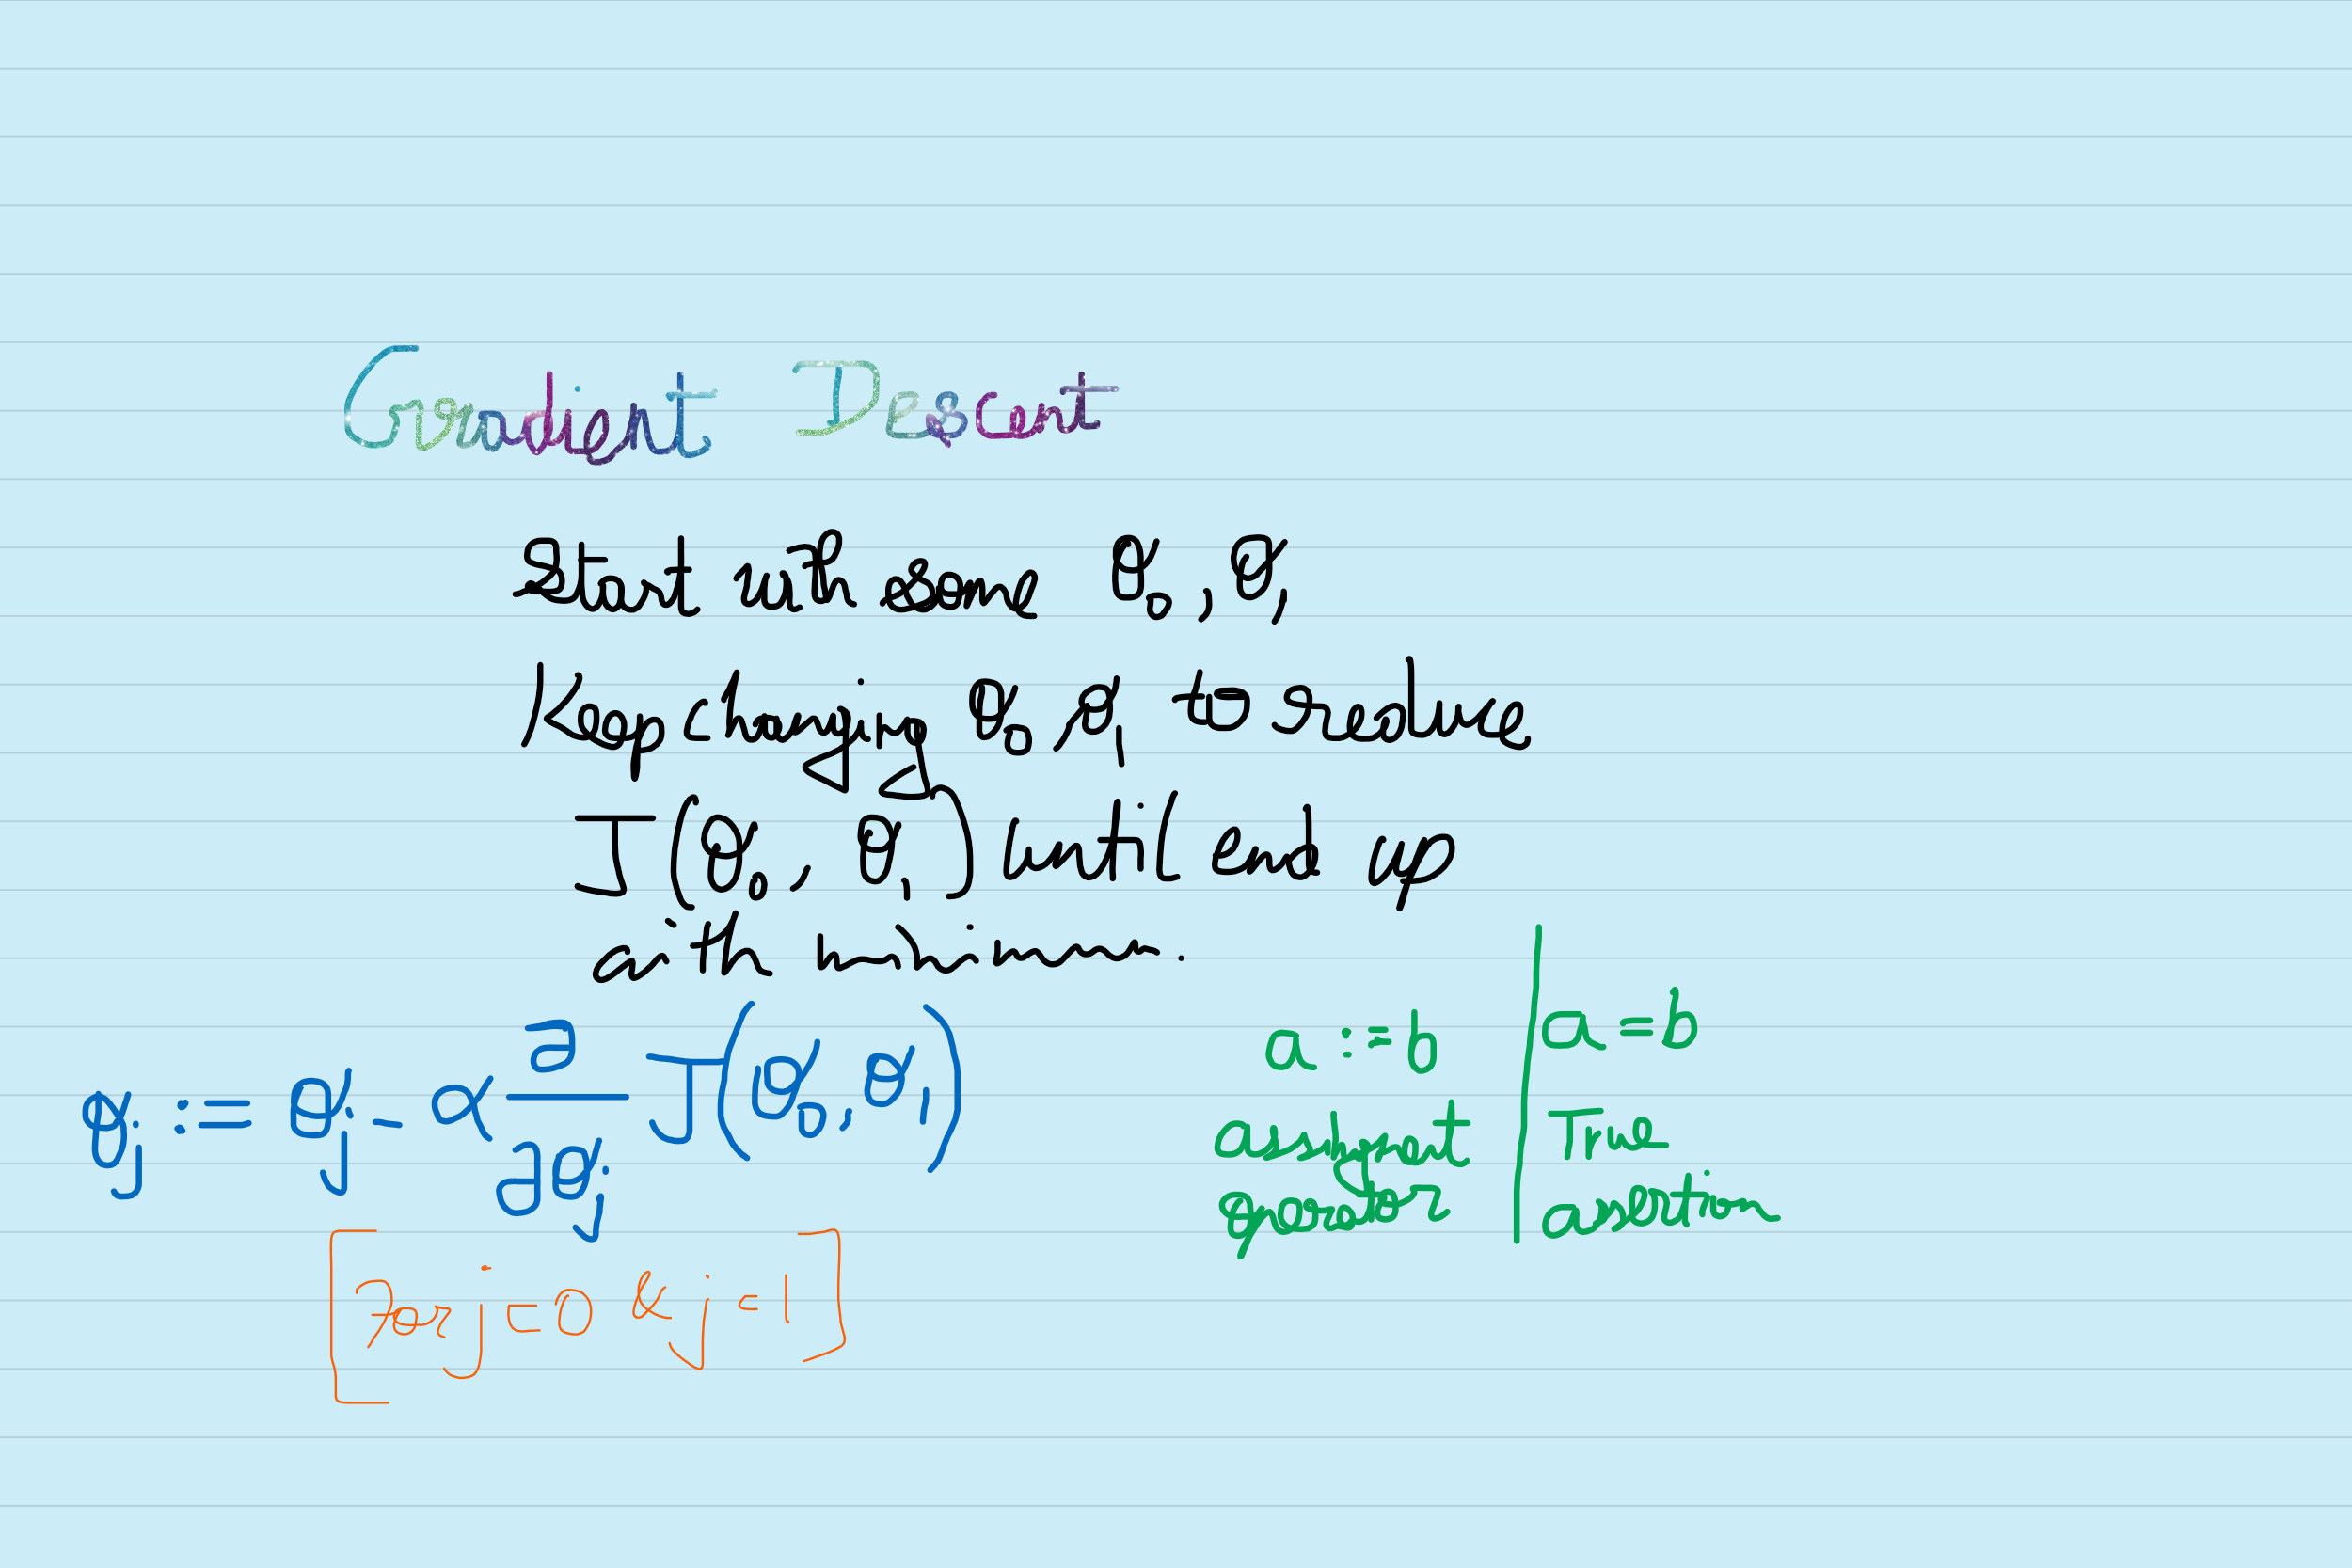 Gradient Descent
Start with some θ₀, θ₁
Keep changing θ₀, θ₁ to reduce
J(θ₀, θ₁) until end up
with minimum.
θj := θj - α ∂/∂θj J(θ₀, θ₁)
[For j = 0 & j = 1]
a := b
assignment
operator
a = b
True
assertion